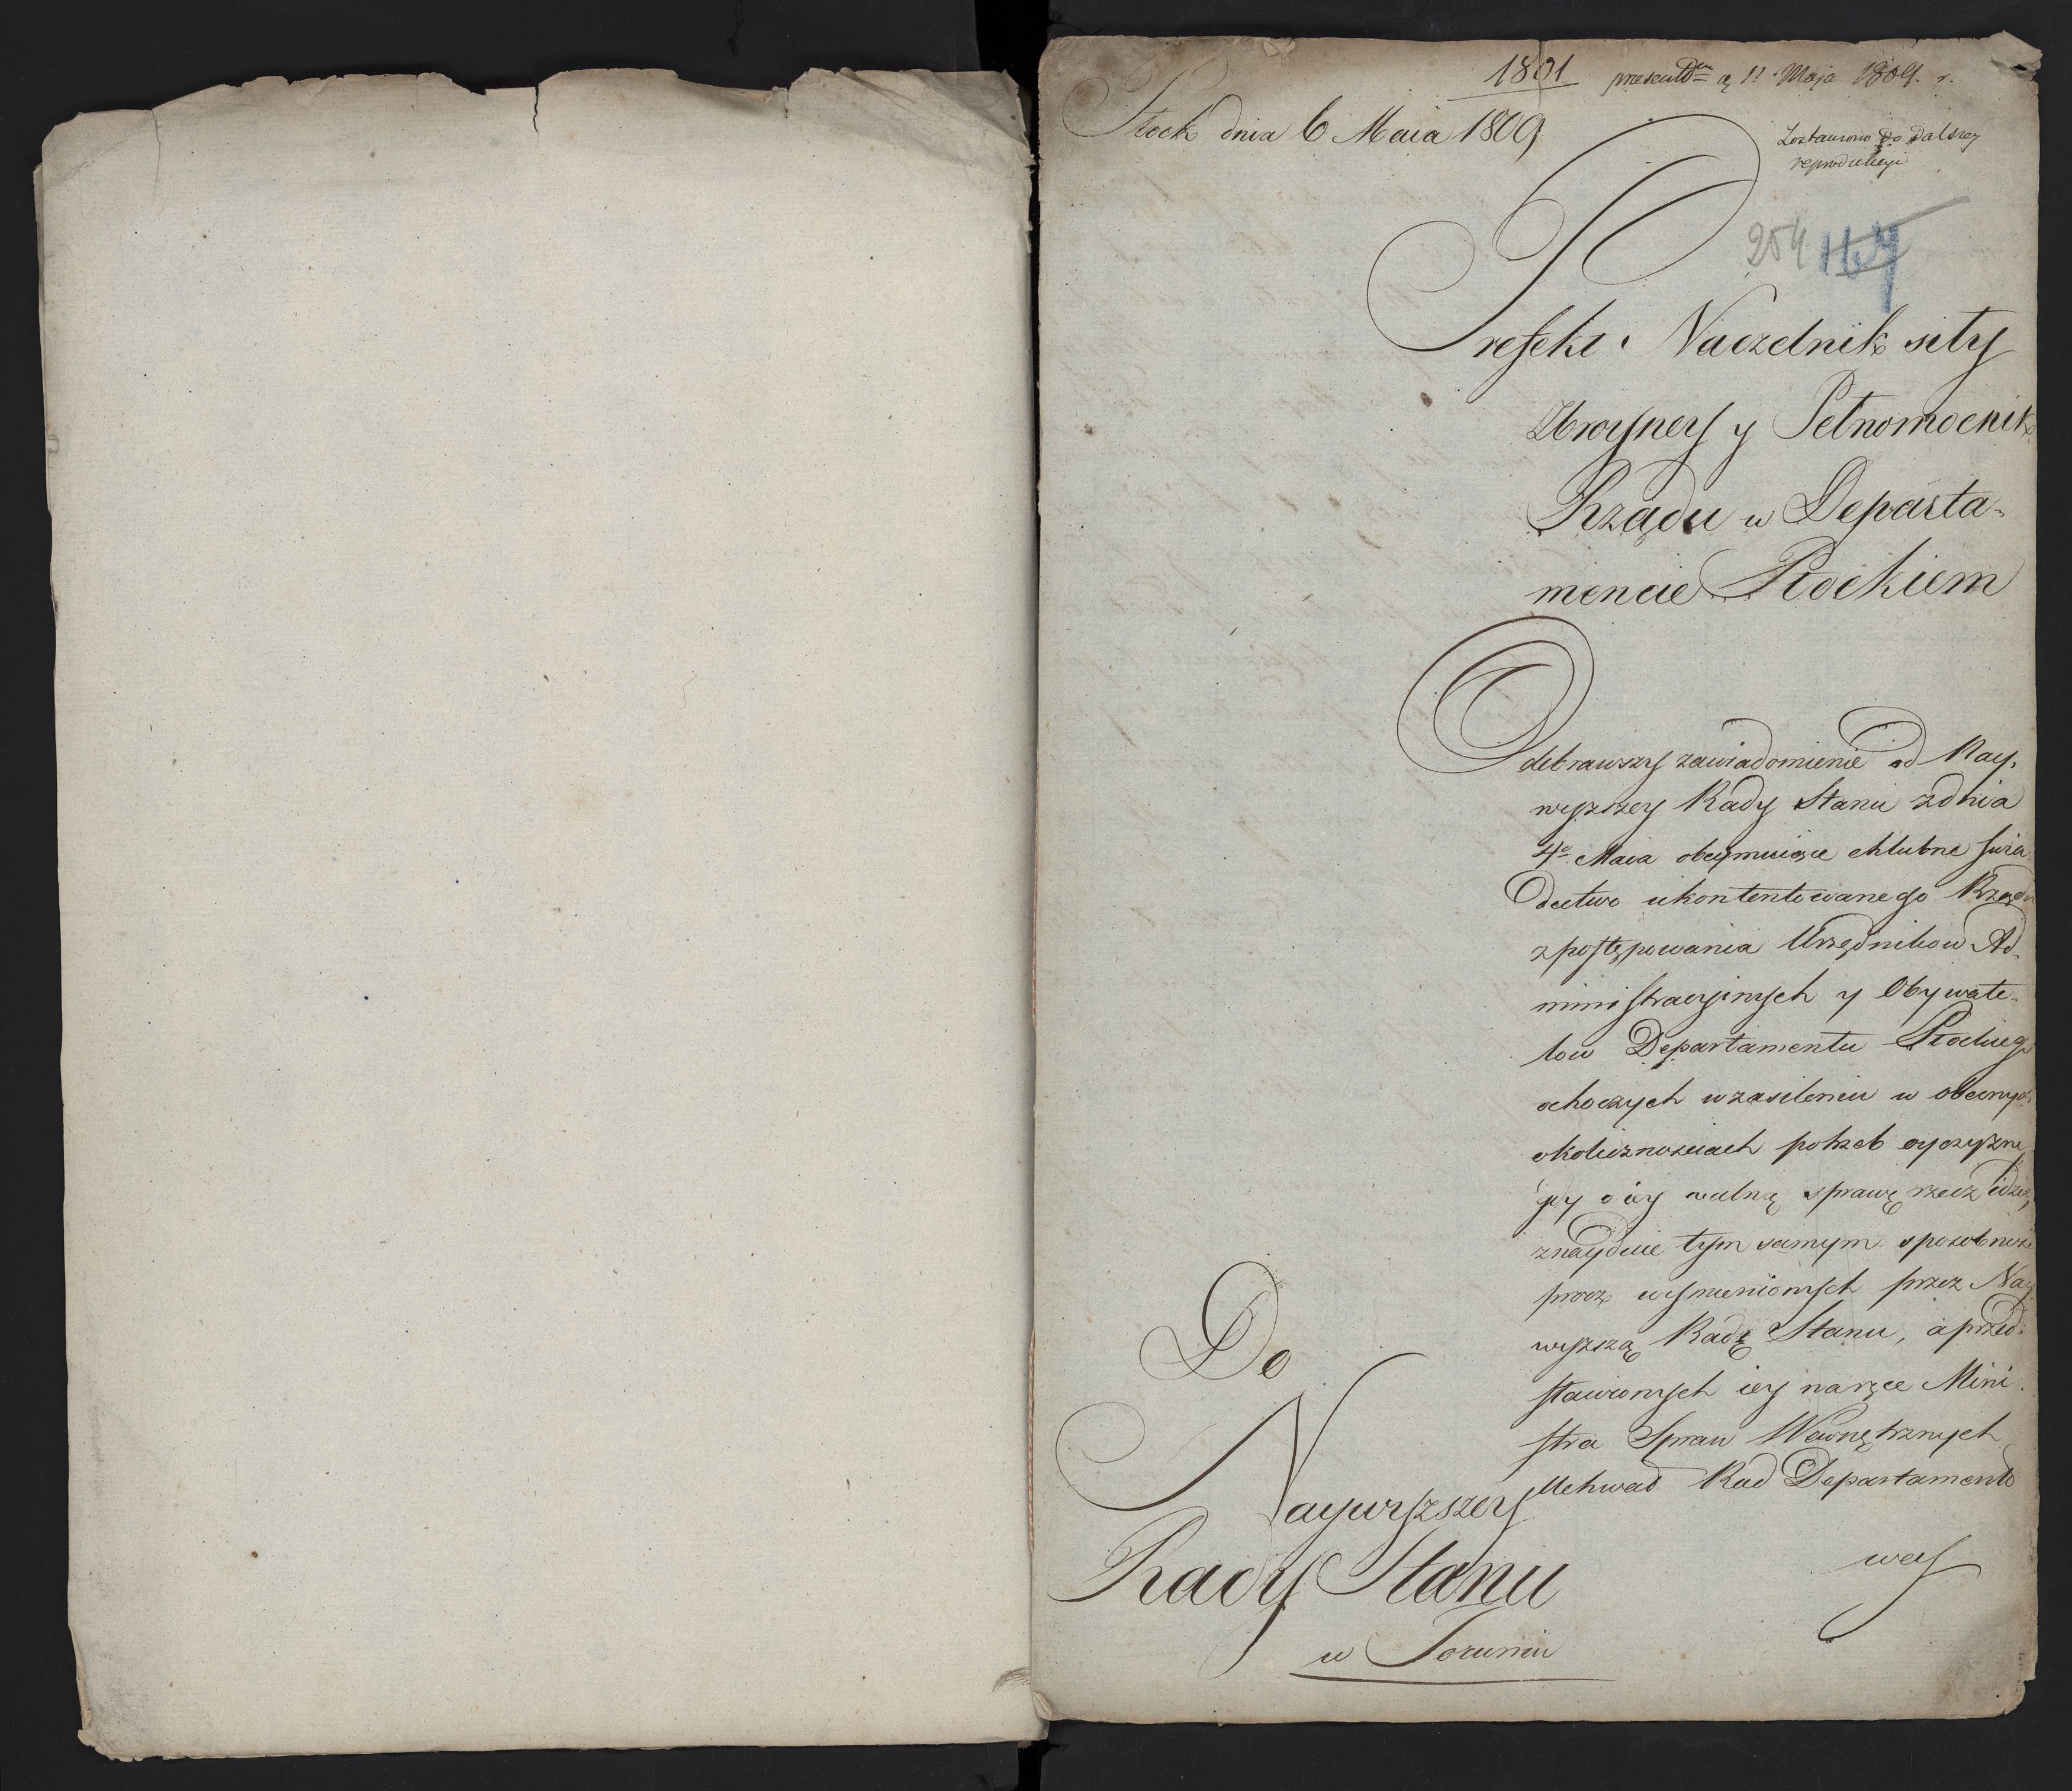 1801 Maja 1809. r.
Płock dnia 6 Maia 1809
Zostawiono do dalszey
reprodukcyi
254 167
Prefekt Naczelnik siły
Zbroyney y Pełnomocnik
Rządu w Departa-
mencie Płockiem
Odebrawszy zawiadomienie od Nay-
wyzszey Rady Stanu z dnia
4o Maia obeymuiące chlubne swia-
dectwo ukontentowanego Rządu
z postępowania Urzędnikow Ad-
ministracyinych y Obywate-
low Departamentu Płockiego
ochoczych w zasileniu w obecnych
okolicznosciach potrzeb oyczyzny
gdy o iey walną sprawę rzecz idzie,
znayduie tym samym sposobnosc
procz wymienionych przez Nay
wyzszą Radę Stanu, a przed-
stawionych iey na ręce Mini-
stra Spraw Wewnętrznych
Uchwał Rad Departamento
wey
Do
Naywyzszey
Rady Stanu
w Toruniu